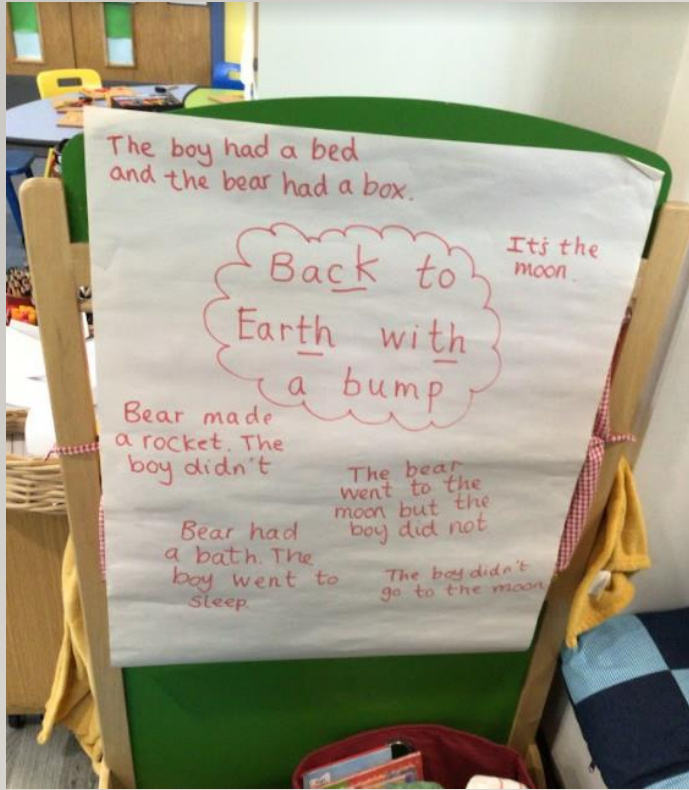 The boy had a bed
and the bear had a box.
It's the
moon.
Back to
Earth with
a bump
Bear made
a rocket. The
boy didn't
The bear
went to the
moon but the
boy did not
Bear had
a bath. The
boy went to
sleep.
The boy didn't
go to the moon